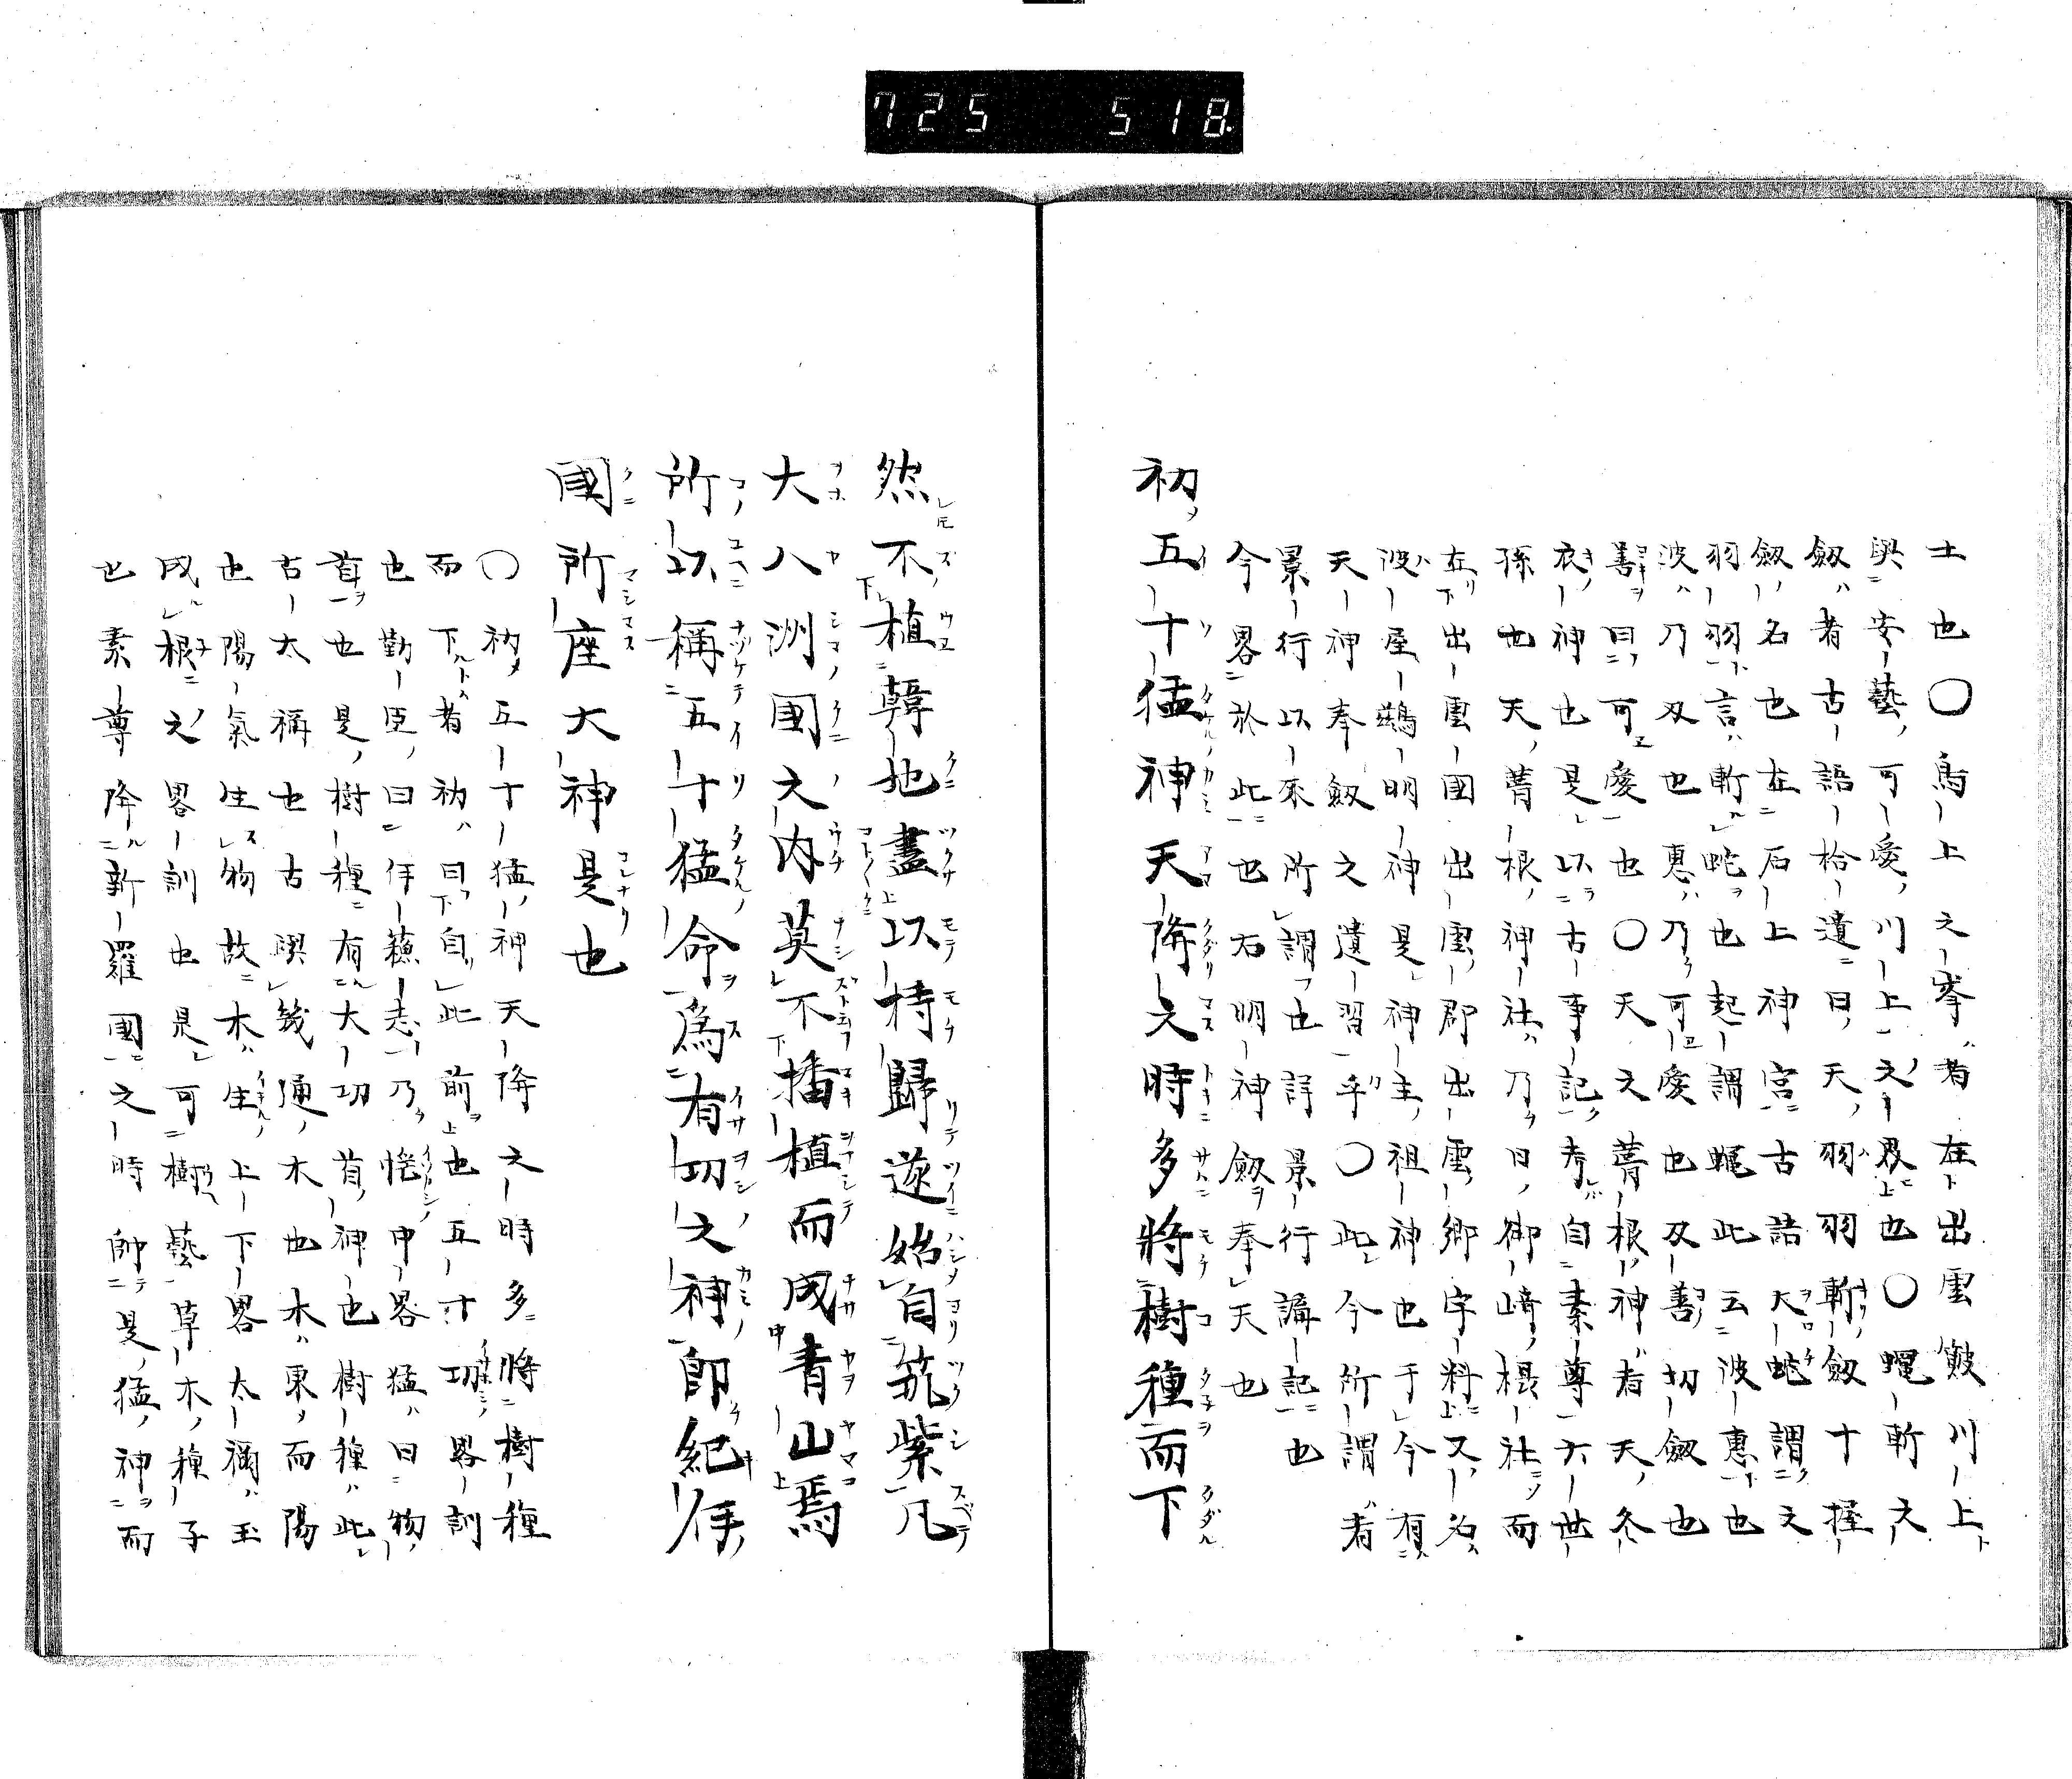 725 518
士也〇鳥上之峯者在出雲簸川上
與安藝可愛川上之界也〇蠅斬之
劔者古語拾遺曰天羽羽斬劔十握
劔名也在石上神宮古語大蛇謂之
羽羽言斬蛇也起謂蠅此云波惠也
波乃刄也惠乃可愛也刄善切劔也
善曰可愛也〇天之葺根神者天冬
衣神也是以古事記考自素尊六世
孫也天葺根神社乃日御﨑根社而
在出雲國出雲郡出雲鄉宇料又名
波屋鵄明神是神主祖神也于今有
天神奉劔之遺習乎〇此今所謂者
景行以來所謂也詳景行講記也
今畧於此也右明神劔奉天也
初五十猛神天降之時多將樹種而下
然不植韓地盡以持歸遂始自筑紫凡
大八洲國之内莫不播植而成青山焉
所以稱五十猛命爲有功之神即紀伊
國所座大神是也
〇初五十猛神天降之時多將樹種
而下者初曰自此前也五十功畧訓
也勤臣曰伊蘓志乃恠申畧猛曰物
首也是樹種有大功首神也樹種此
古太稱也古與幾通木也木東而陽
也陽氣生物故木生上下畧太稱玉
成根之畧訓也是可樹藝草木種子
也素尊降新羅國之時帥是猛神而